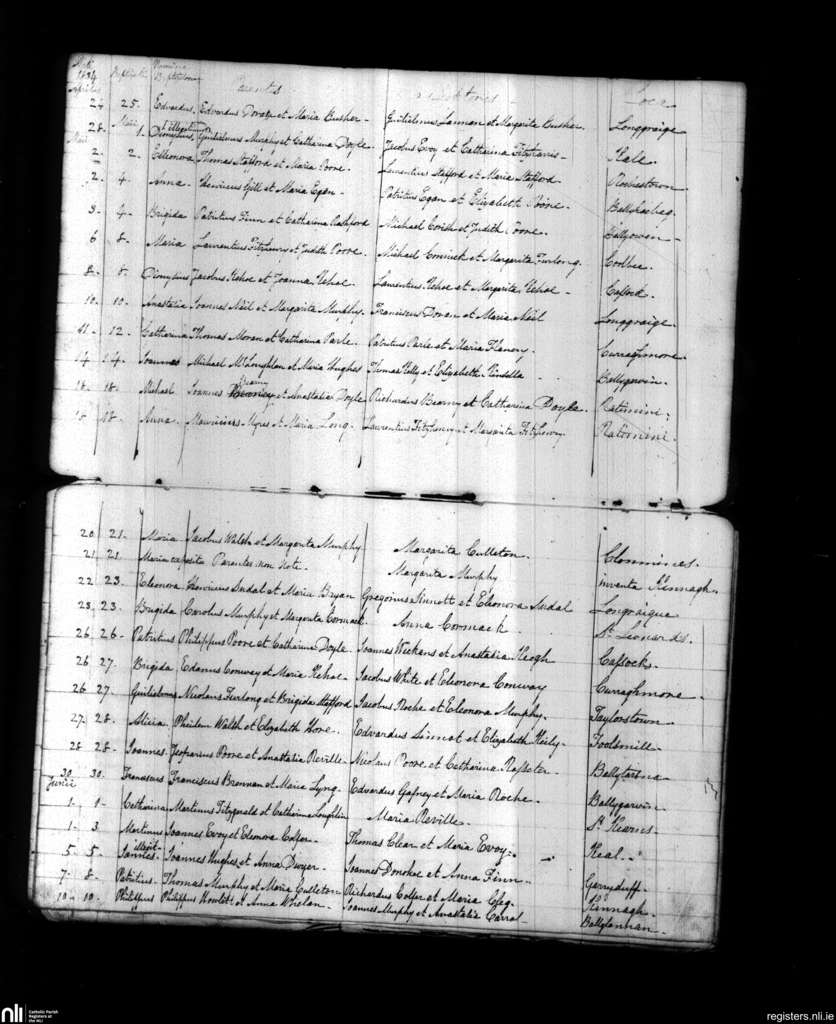 1834 Baptizti Nomina Baptizatorum Parentes Loca
Aprilis
24 25. Edvardus. Edvardus et Maria Busher - Gulielmus Lannan et Margarita Busher. Longgraige
Maii
28. 1. illegitimus Dionysius, Gulielmus Murphy et Catharina Doyle. Jacobus Evoy et Catharina Fitzharris - Kale
Maii
2 2. Elleonora Thomas Stafford et Maria Poore. Laurentius Stafford et Maria Stafford Rochestown.
2. 4. Anna. Henricus Gill et Maria Egan. Patritius Egan et Elizabeth Poore.
3. 4. Brigida Patritius Finn et Catharina Rashford Michael Corish et Judith Poore. Ballyowin -
6 8. Maria Laurentius Fitzhenry et Judith Poore. Michael et Margarita Furlong.
8. 8. Dionysius Jacobus Kehoe et Joanna Kehoe. Laurentius Kehoe et Margarita Kehoe - Cassock.
10. 10. Anastatia Joannes Neil et Margarita Murphy. Franciscus Doran et Maria Neil Longgraige.
11. 12. Catharina Thomas Moran et Catharina Parle. Patritius Parle et Maria Flanery. Curraghmore.
14 14. Joannes Michael McLoughlan et Maria Hughes Thomas Kelly et Elizabeth Kinsella Ballygarvin.
18. 18. Michael Joannes Bearny et Anastatia Doyle Richardus Bearny et Catharina Doyle. Ratimini.
18 18. Anna. Mauricius et Maria Long. Laurentius Fitzhenry et Margarita Fitzhenry. Ratomini.
20. 21. Maria Jacobus Walsh et Margarita Murphy. Margarita Culleton. Clonmines.
21. 21. Maria exposita Parentes non noti. Margarita Murphy inventa Kinnagh.
22. 23. Eleonora Henricus Sudal et Maria Bryan Gregorius Sinnott et Eleonora Sudal Longraigue
23. 23. Brigida Carolus Murphy et Margarita Cormack. Anna Cormack. St. Leonards.
26. 26. Patritius Philippus Poore et Catharina Doyle. Joannes Wickans et Anastatia Keogh Cassocks.
26 27. Brigida. Edanus Conway et Maria Kehoe. Jacobus White et Eleonora Conway Curraghmore.
26 27. Gulielmus Nicolaus Furlong et Brigida Stafford Jacobus Roche et Eleonora Murphy. Taylorstown.
27. 28. Alicia. Phielem Walsh et Elizabeth Hore. Edvardus Sinnot et Elizabeth Keily. Foolsmill.
28 28. Joannes. Jesparius Poore et Anastatia Reville. Nicolaus Poore et Catharina Rossiter. Ballytarsna
30. 30. Franciscus Franciscus Brennan et Maria Lyng. Edvardus Gafney et Maria Roche. Ballygarvin
Junii
1. 1. Catharina Martinus Fitzgerald et Catharina Loughlin Maria Reville. St. Kearns.
1. 3. Martinus Joannes Evoy et Eleonora Colfer. Thomas Clear et Maria Evoy. Keal.
5. 5. illegit. Joannes Joannes Hughes et Anna Dwyer. Joannes Donohoe et Anna Finn. Gerryduff.
7. 8. Patritius. Thomas Murphy et Maria Culleton. Richardus Colfer et Maria Kinnagh.
10. 10. Philippus Philippus Howlett et Anna Whelan. Joannes Murphy et Anastatia Carrol. Ballylannan.
nli Catholic Parish Registers at the NLI
registers.nli.ie